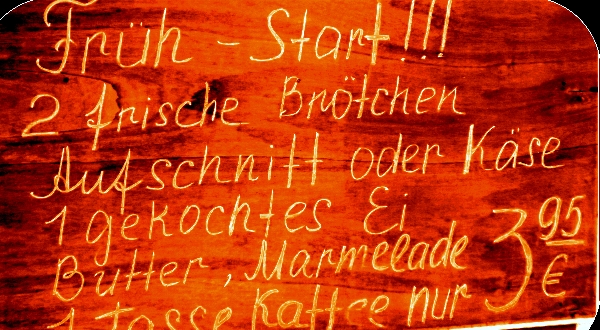 Früh - Start!!!
2 frische Brötchen
Aufschnitt oder Käse
1 gekochtes Ei
Butter, Marmelade
1 Tasse Kaffee nur 3 95 €